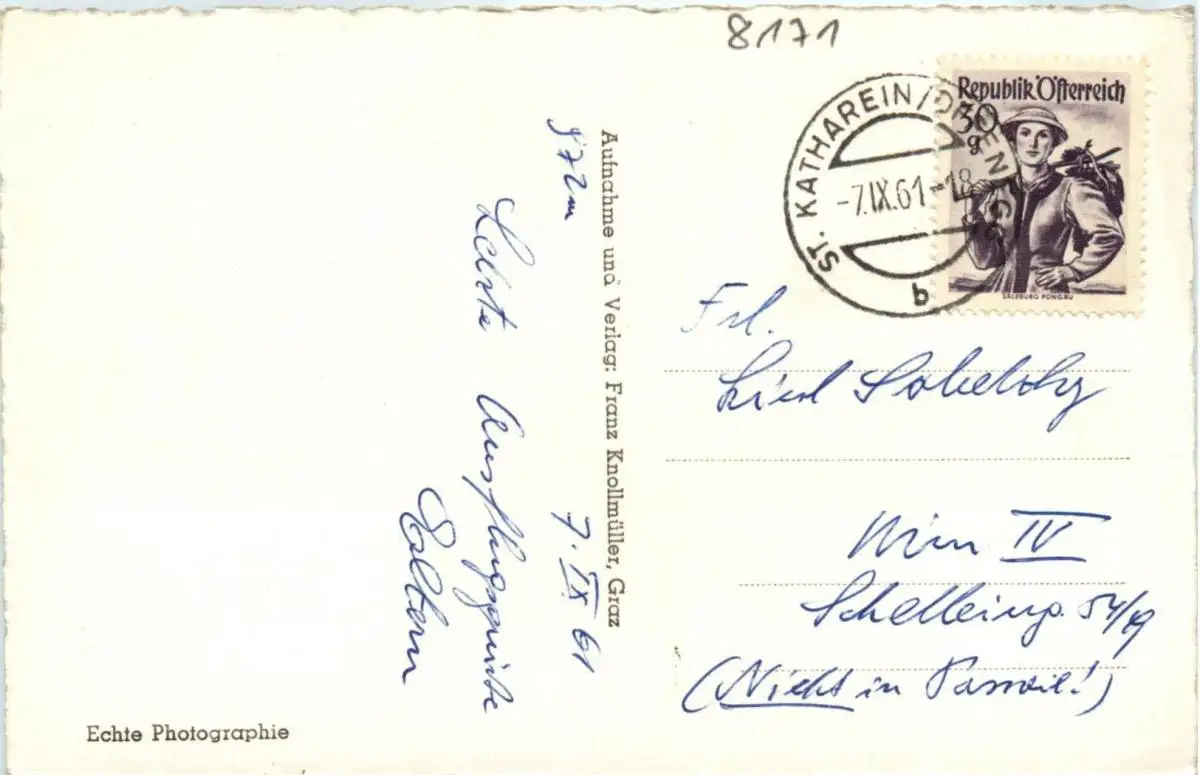 8171
Republik Österreich
30
g
SALZBURG PONGAU
ST. KATHAREIN/
-7.IX.61-18
b
Aufnahme und Verlag: Franz Knollmüller, Graz
972m
7. IX 61
Letzte Ausflugsgrüße
Eltern
Frl.
Liesl
Wien IV
Schelleing. 54/19
(Nicht in
Echte Photographie